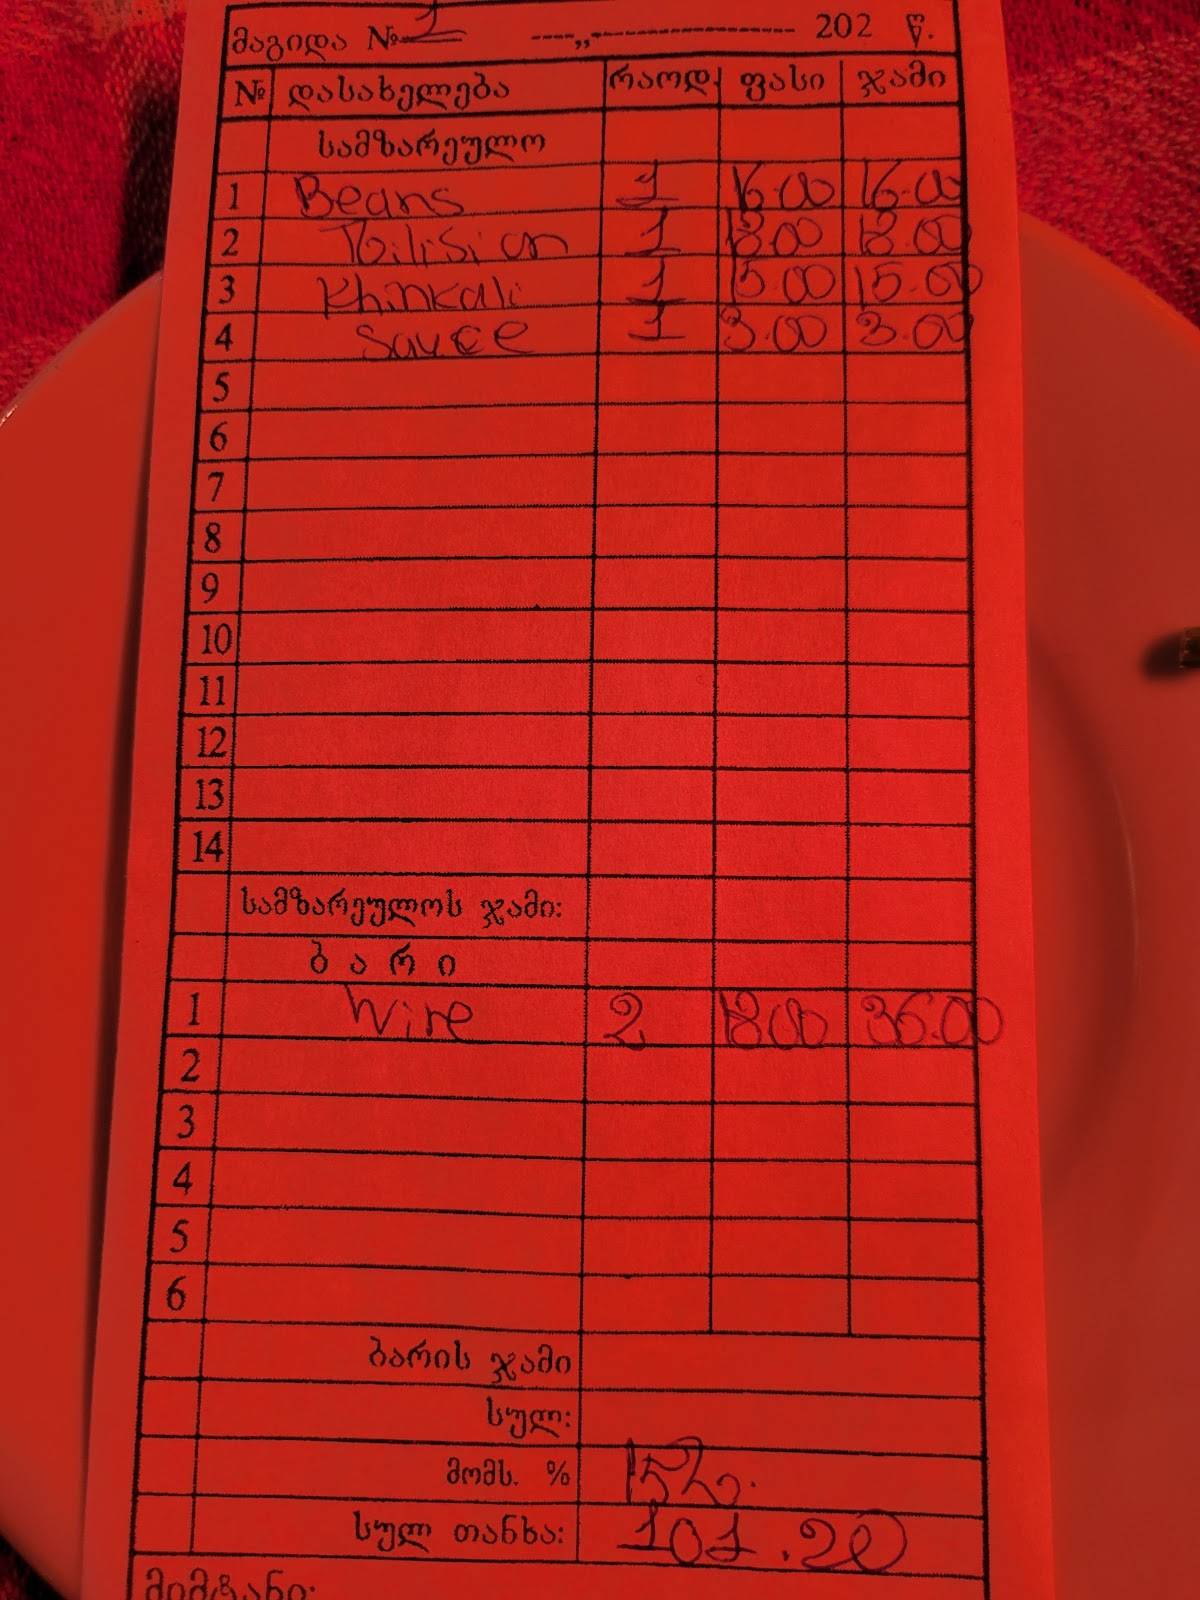 მაგიდა № 1 ----„--------------- 202 წ.
№ დასახელება რაოდ. ფასი ჯამი
სამზარეულო
1 Beans 1 16.00 16.00
2 Tbilisi on 1 18.00 18.00
3 Khinkali 1 15.00 15.00
4 Sauce 1 3.00 3.00
5
6
7
8
9
10
11
12
13
14
სამზარეულოს ჯამი:
ბარი
1 Wine 2 18.00 36.00
2
3
4
5
6
ბარის ჯამი
სულ:
მომს. % 15%.
სულ თანხა: 101.20
მიმტანი: